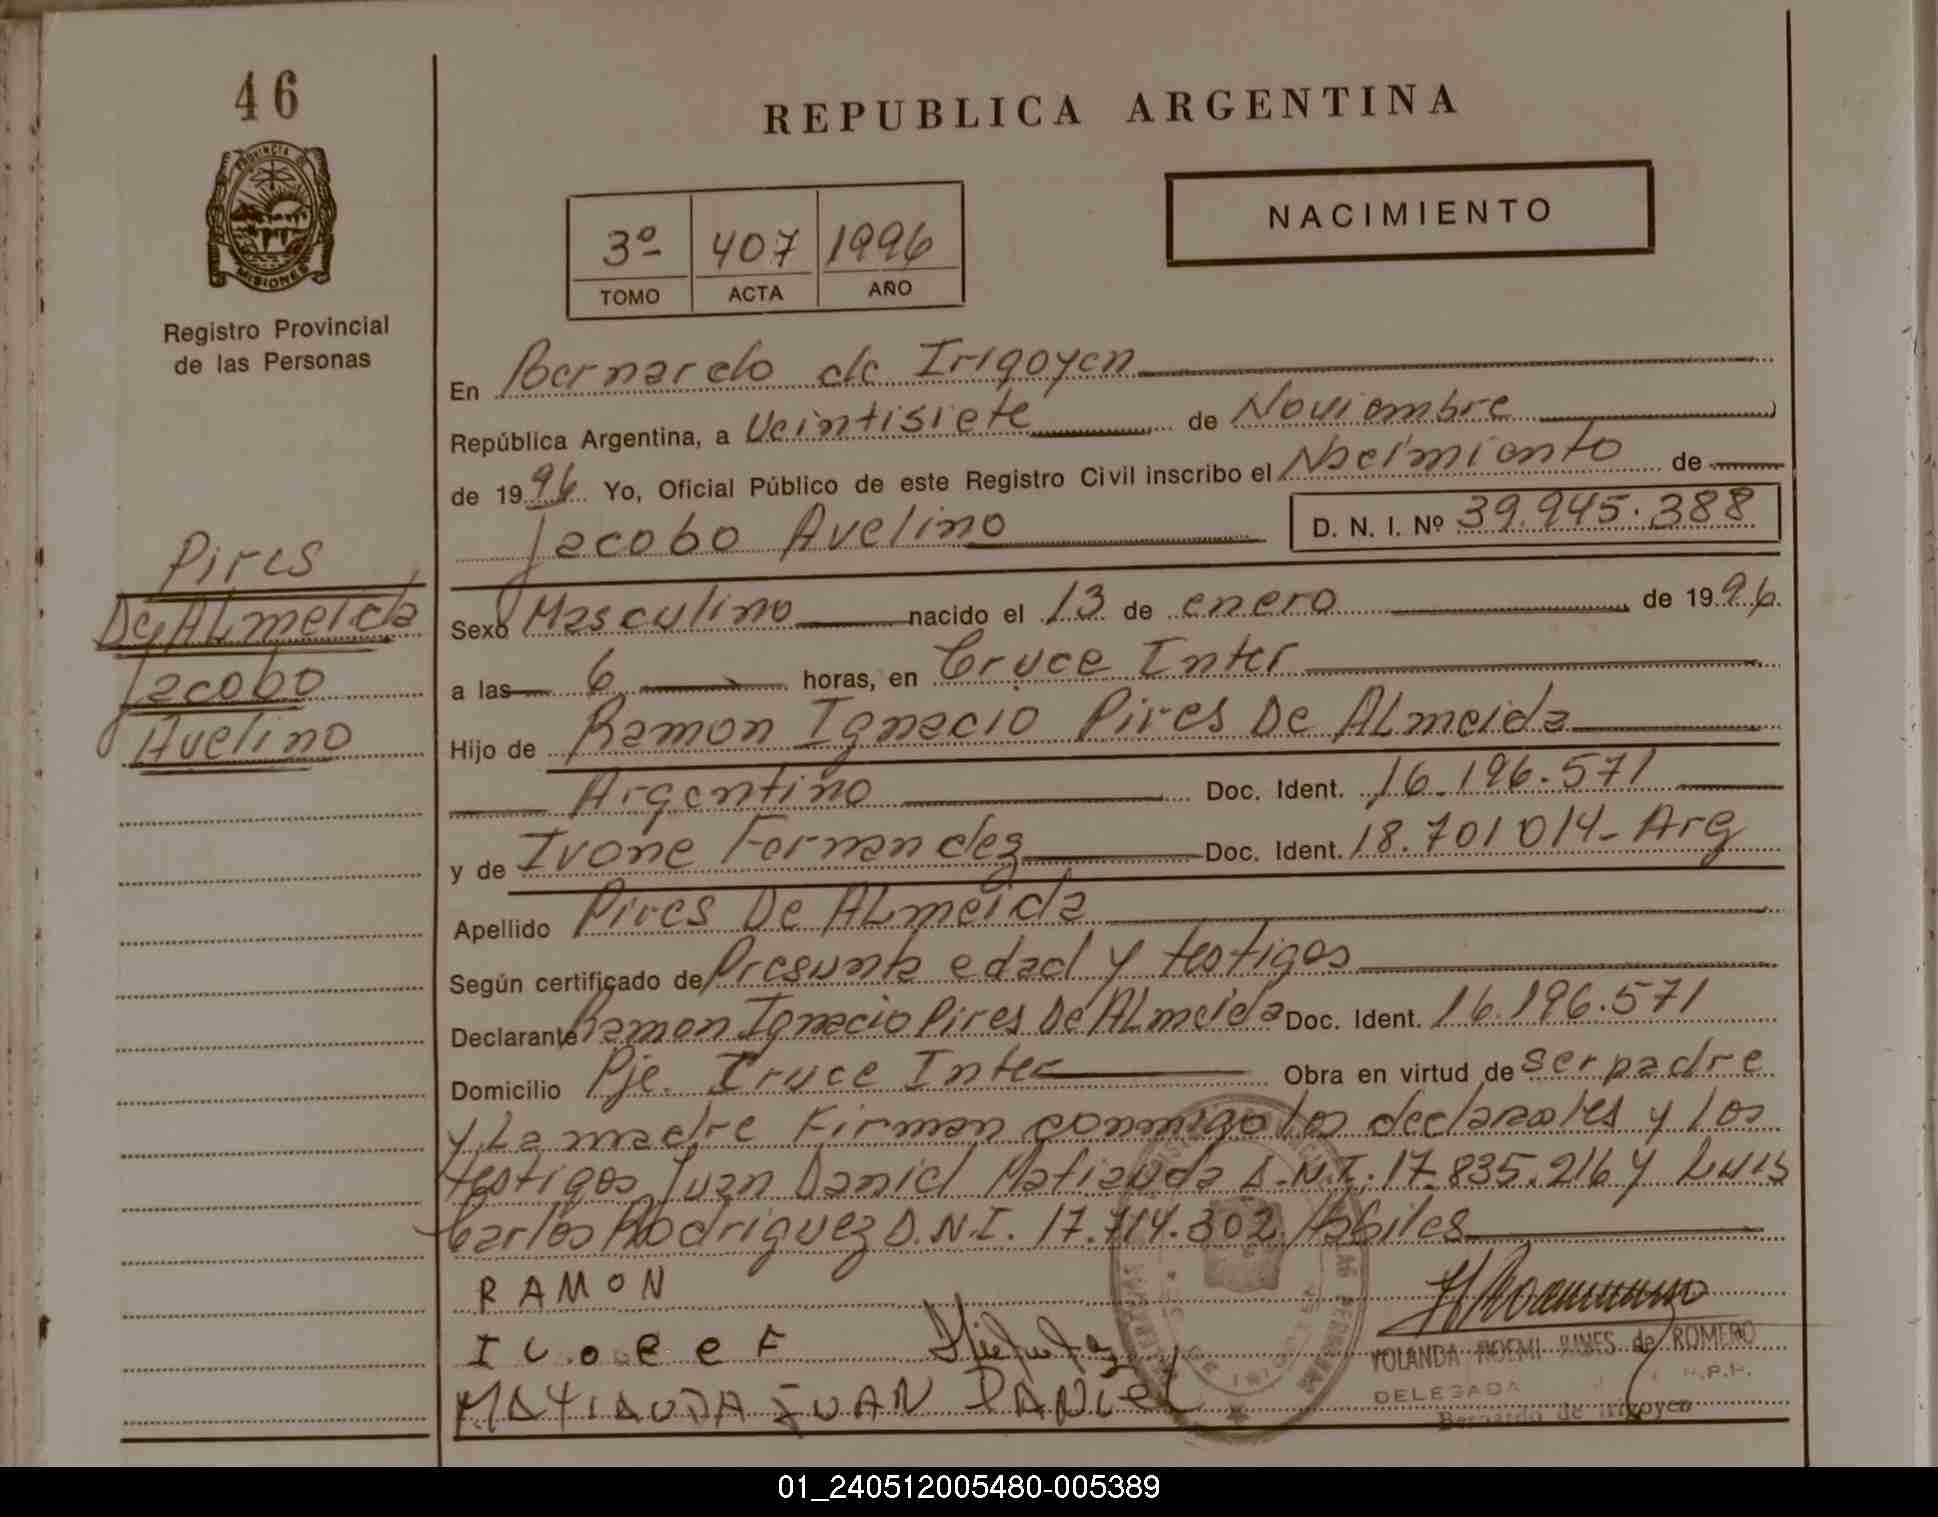 46
PROVINCIA DE
MISIONES
Registro Provincial
de las Personas
REPUBLICA ARGENTINA
3º 407 1996
TOMO ACTA AÑO
NACIMIENTO
En Bernardo de Irigoyen
República Argentina, a Veintisiete de Noviembre
de 1996 Yo, Oficial Público de este Registro Civil inscribo el Nacimiento de
Jacobo Avelino D. N. I. Nº 39.945.388
Pires
De ALmeida
Jacobo
Avelino
Sexo Masculino nacido el 13 de enero de 1996
a las 6 horas, en Cruce Inter
Hijo de Ramon Ignacio Pires De ALmeida
Argentino Doc. Ident. 16.196.571
y de Ivone Fernandez Doc. Ident. 18.701014- Arg
Apellido Pires De ALmeida
Según certificado de Presunta edad y testigos
Declarante Ramon Ignacio Pires De ALmeida Doc. Ident. 16.196.571
Domicilio Pje. Cruce Inter Obra en virtud de ser padre
y La madre Firman conmigo los declarantes y los
testigos Juan Daniel Matiauda D.N.I. 17.835.216 y Luis
Carlos Rodriguez D.N.I. 17.714.302 Habiles
RAMON
MATIAUDA JUAN DANIEL
YOLANDA NOEMI de ROMERO
DELEGADA R.P.P.
Bernardo de Irigoyen
01_240512005480-005389